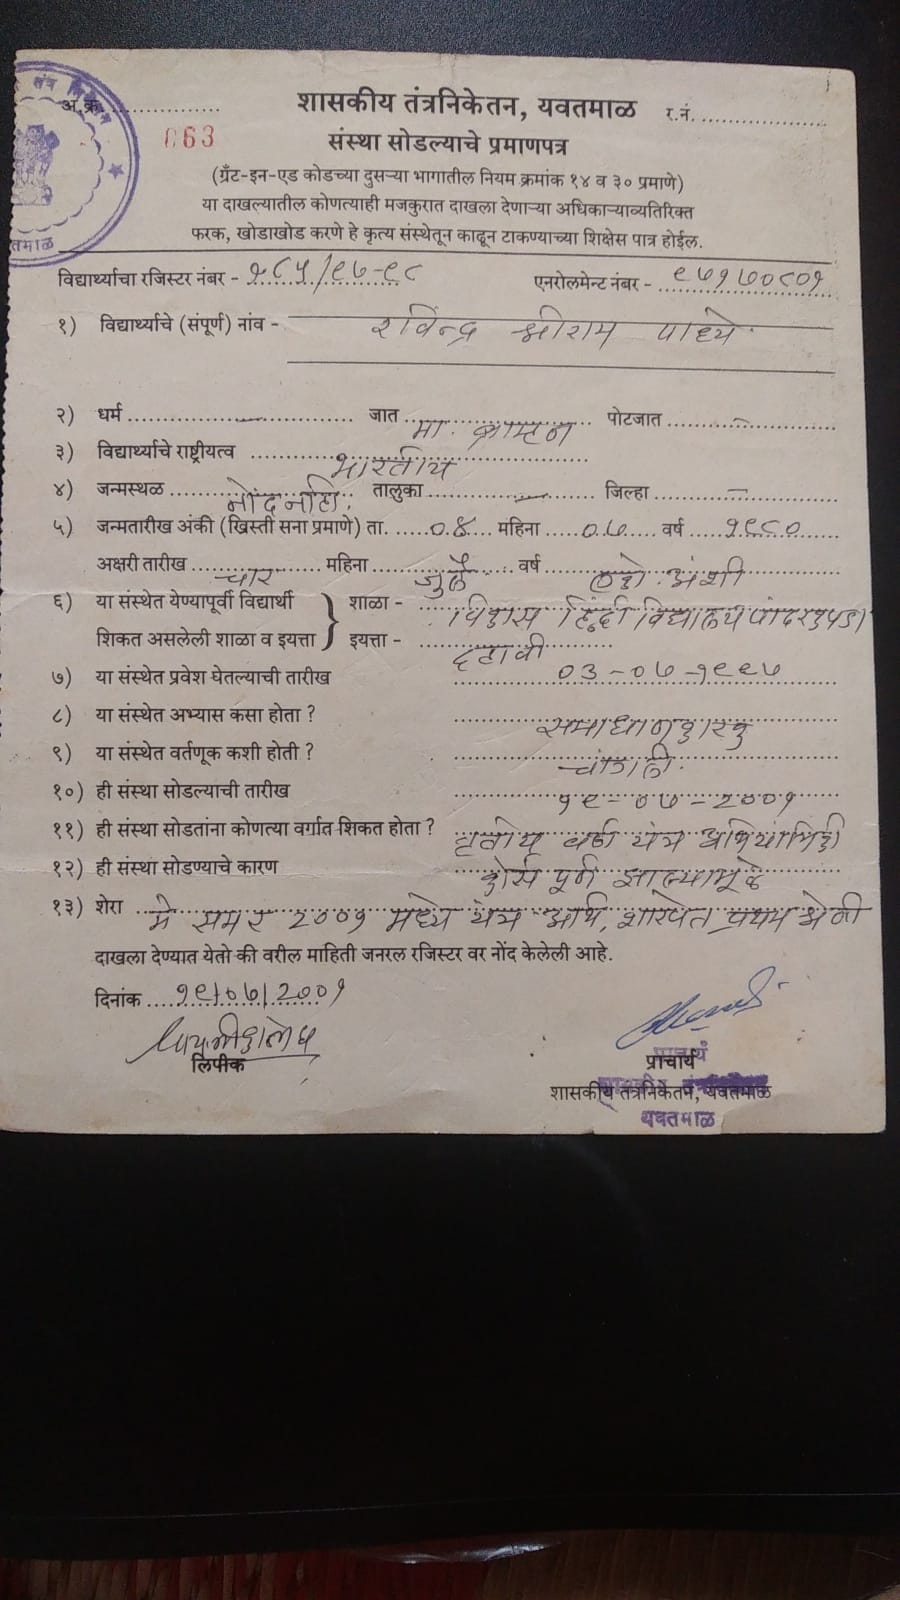 तंत्र निकेतन
तमाळ
अ.क्र. ....................
शासकीय तंत्रनिकेतन, यवतमाळ
र.नं. ....................
063
संस्था सोडल्याचे प्रमाणपत्र
(ग्रँट-इन-एड कोडच्या दुसऱ्या भागातील नियम क्रमांक १४ व ३० प्रमाणे)
या दाखल्यातील कोणत्याही मजकुरात दाखला देणाऱ्या अधिकाऱ्याव्यतिरिक्त
फरक, खोडाखोड करणे हे कृत्य संस्थेतून काढून टाकण्याच्या शिक्षेस पात्र होईल.
विद्यार्थ्याचा रजिस्टर नंबर - १८५/९७-९८ एनरोलमेन्ट नंबर - ९७१७०८०१
१) विद्यार्थ्याचे (संपूर्ण) नांव - रविन्द्र श्रीराम पाध्ये
२) धर्म .......... — .......... जात मा. ब्राम्हन पोटजात .......... — ..........
३) विद्यार्थ्याचे राष्ट्रीयत्व भारतीय
४) जन्मस्थळ नोंद नाही. तालुका — जिल्हा —
५) जन्मतारीख अंकी (ख्रिस्ती सना प्रमाणे) ता. ०४ महिना ०७ वर्ष १९८०
अक्षरी तारीख चार महिना जुलै वर्ष अंशी
६) या संस्थेत येण्यापूर्वी विद्यार्थी शाळा - विकास हिंदी विद्यालय पांढरकवडा
शिकत असलेली शाळा व इयत्ता इयत्ता - दहावी
७) या संस्थेत प्रवेश घेतल्याची तारीख ०३-०७-१९९७
८) या संस्थेत अभ्यास कसा होता ? समाधानकारक
९) या संस्थेत वर्तणूक कशी होती ? चांगली.
१०) ही संस्था सोडल्याची तारीख १९-०७-२००१
११) ही संस्था सोडतांना कोणत्या वर्गात शिकत होता ? तृतीय वर्ष यंत्र अभियांत्रिकी
१२) ही संस्था सोडण्याचे कारण कोर्स पूर्ण झाल्यामूळे
१३) शेरा मे समर २००१ मध्ये यंत्र प्रथम श्रेणी
दाखला देण्यात येतो की वरील माहिती जनरल रजिस्टर वर नोंद केलेली आहे.
दिनांक १९/०७/२००१
लिपीक
प्राचार्य
प्राचार्य
शासकीय तंत्रनिकेतन, यवतमाळ
शासकीय तंत्रनिकेतन
यवतमाळ